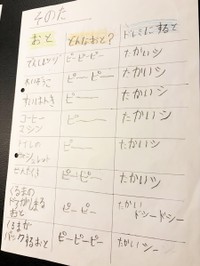 そのた
おと どんなおと？ ドレミにすると
でんしレンジ ピーピーピー たかいシ
れいぞうこ ピー ピー たかいシ
すいはんき ピー〜 たかいシ
コーヒー
マシン ピー〜 たかいシ
トイレの
ウォシュレット ピー〜 たかいシ
せんたくき ピーピー〜 たかいシ
くるまの
ドアがしまる
おと ピーピー たかい
ドシードシー
くるまが
バックするおと ピーピーピー たかいシー